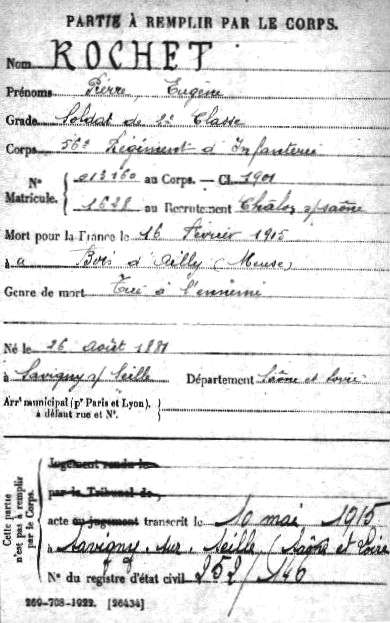 PARTIE À REMPLIR PAR LE CORPS.
Nom ROCHET
Prénoms Pierre, Eugène
Grade Soldat de 2e Classe
Corps 56e Régiment d'Infanterie
N° Matricule. 013160 au Corps. — Cl. 1901
1628 au Recrutement Châlon s/ saône
Mort pour la France le 16 Février 1915
à a Bois d'Ailly (Meuse)
Genre de mort Tué à l'ennemi
Né le 26 août 1881
à Savigny s/ Seille Département Saône et Loire
Arr^t municipal (p^r Paris et Lyon), à défaut rue et N°.
Cette partie n'est pas à remplir par le Corps.
Jugement rendu le
par le Tribunal de
acte ou jugement transcrit le 10 mai 1915
à Savigny-sur-Seille (Saône et Loire
N° du registre d'état civil 252/146
269-708-1922. [26434]